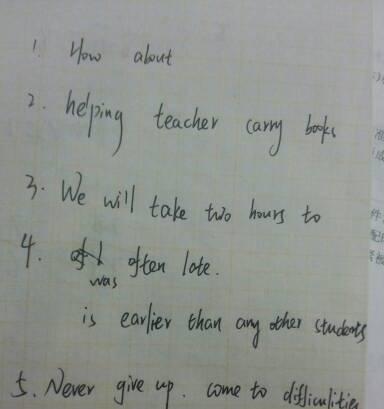 1. How about
2. helping teacher carry books
3. We will take two hours to
4. was often late.
is earlier than any other students
5. Never give up. come to difficulities